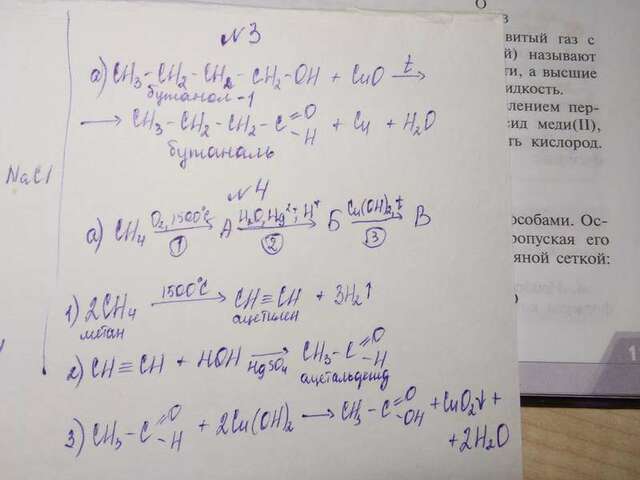 №3
а) CH₃–CH₂–CH₂–CH₂–OH + CuO →t
бутанол-1
→ CH₃–CH₂–CH₂–C(=O)–H + Cu + H₂O
бутаналь
NaCl
№4
а) CH₄ →(O₂, 1500°C) (1) А →(H₂O, Hg²⁺, H⁺) (2) Б →(Cu(OH)₂, t) (3) В
1) 2CH₄ →(1500°C) CH≡CH + 3H₂↑
метан ацетилен
2) CH≡CH + HOH →(HgSO₄) CH₃–C(=O)–H
ацетальдегид
3) CH₃–C(=O)–H + 2Cu(OH)₂ → CH₃–C(=O)–OH + CuO₂↓ +
+ 2H₂O
витый газ с
й) называют
ти, а высшие
идкость.
лением пер-
сид меди(II),
ть кислород.
особами. Ос-
ропуская его
яной сеткой:
1